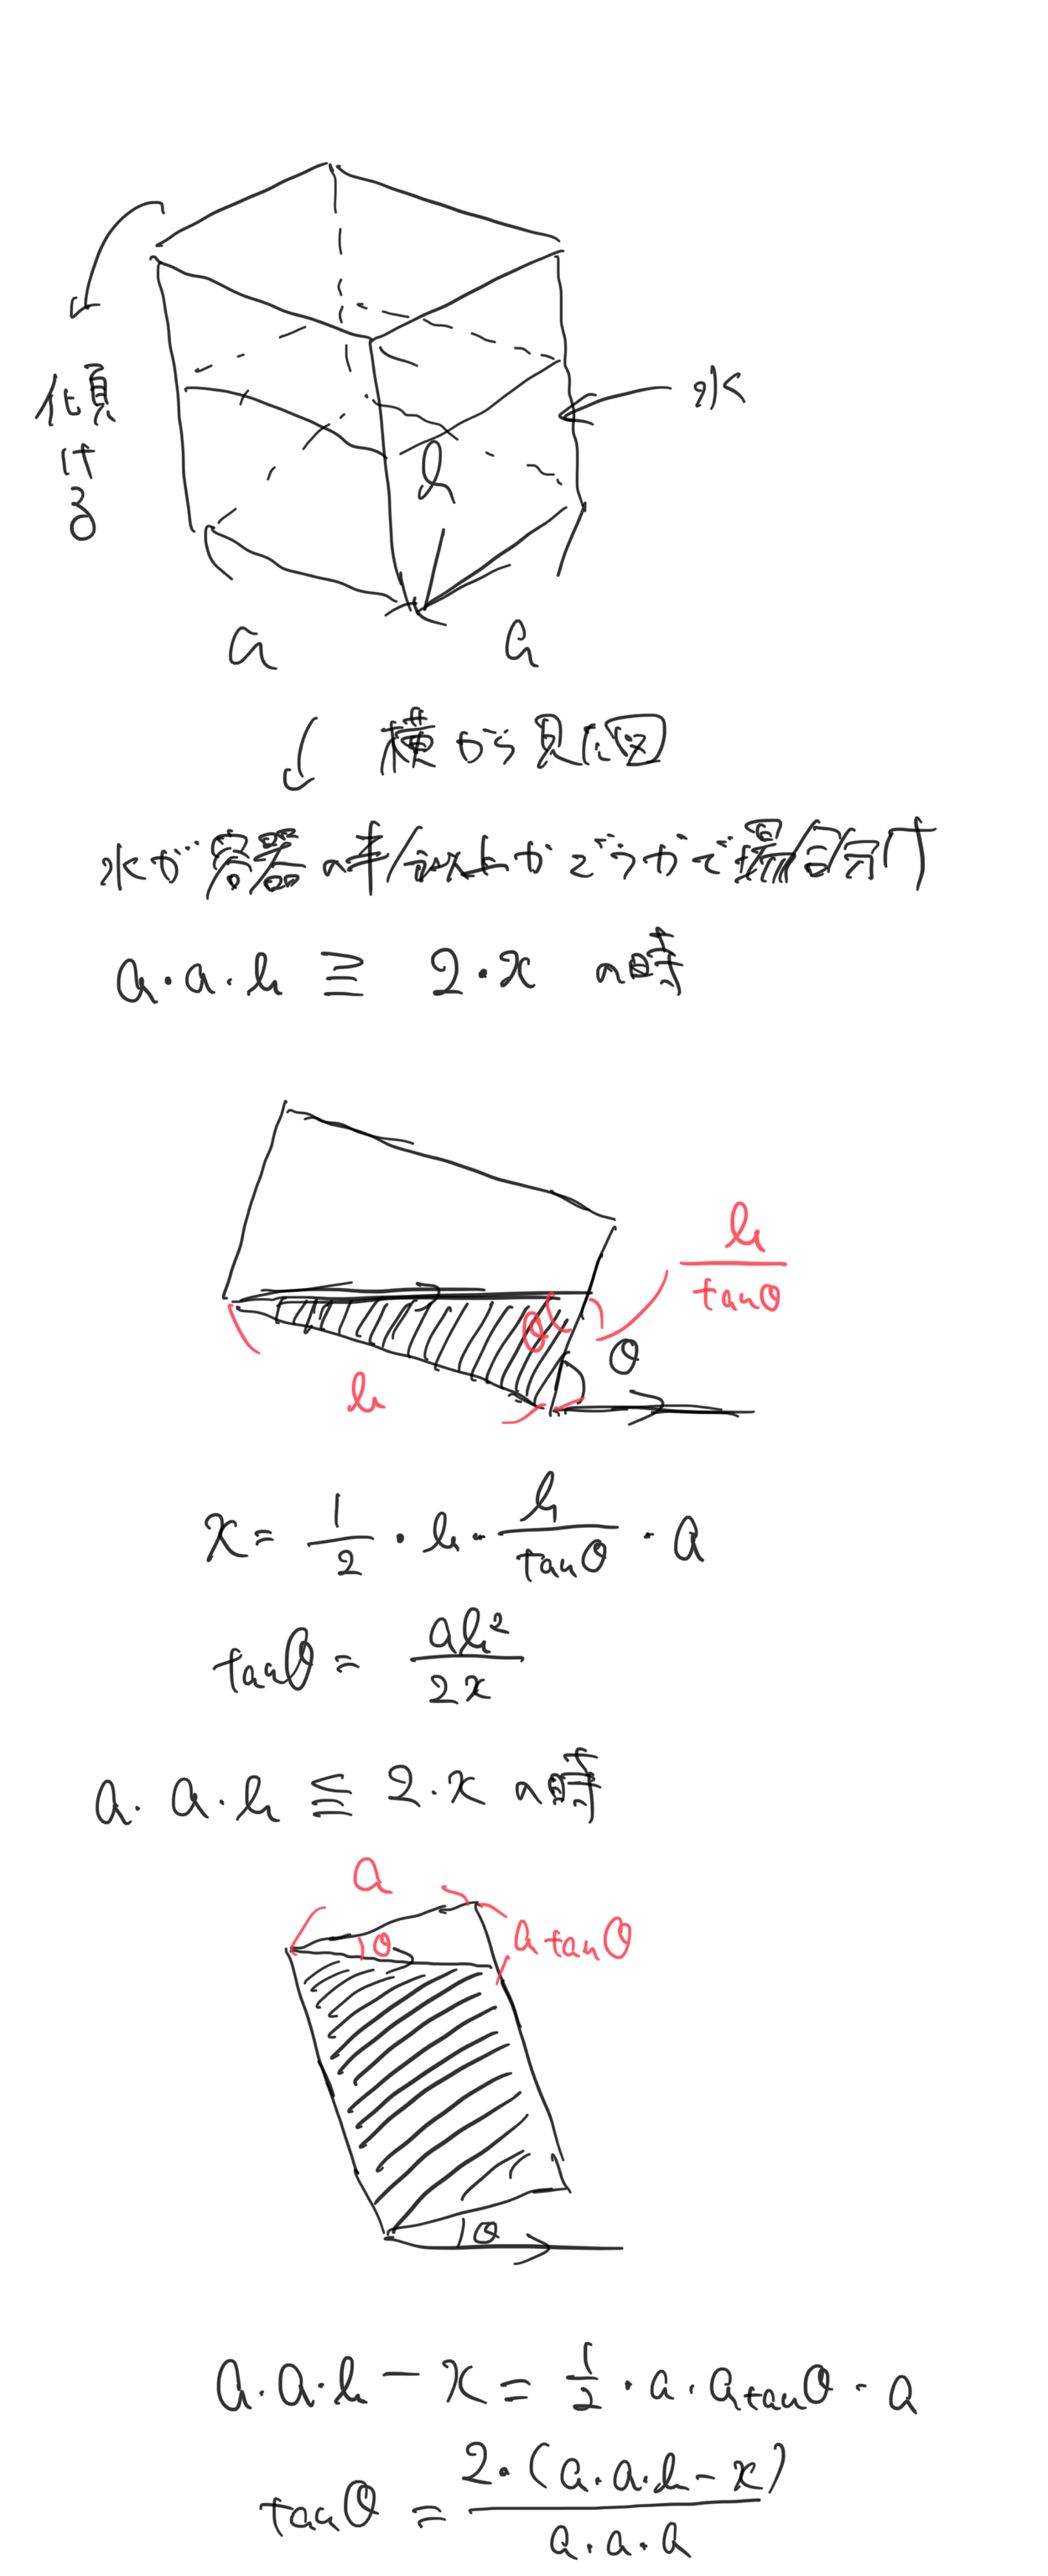 傾ける
水
b
a a
横から見た図
水が容器の半分以上かどうかで場合分け
a・a・b ≧ 2・x の時
b/tanθ
θ
θ
b
x = 1/2・b・b/tanθ・a
tanθ = ab²/2x
a・a・b ≦ 2・x の時
a
θ
a tanθ
θ
a・a・b − x = 1/2・a・a tanθ・a
tanθ = 2・(a・a・b − x)/a・a・a